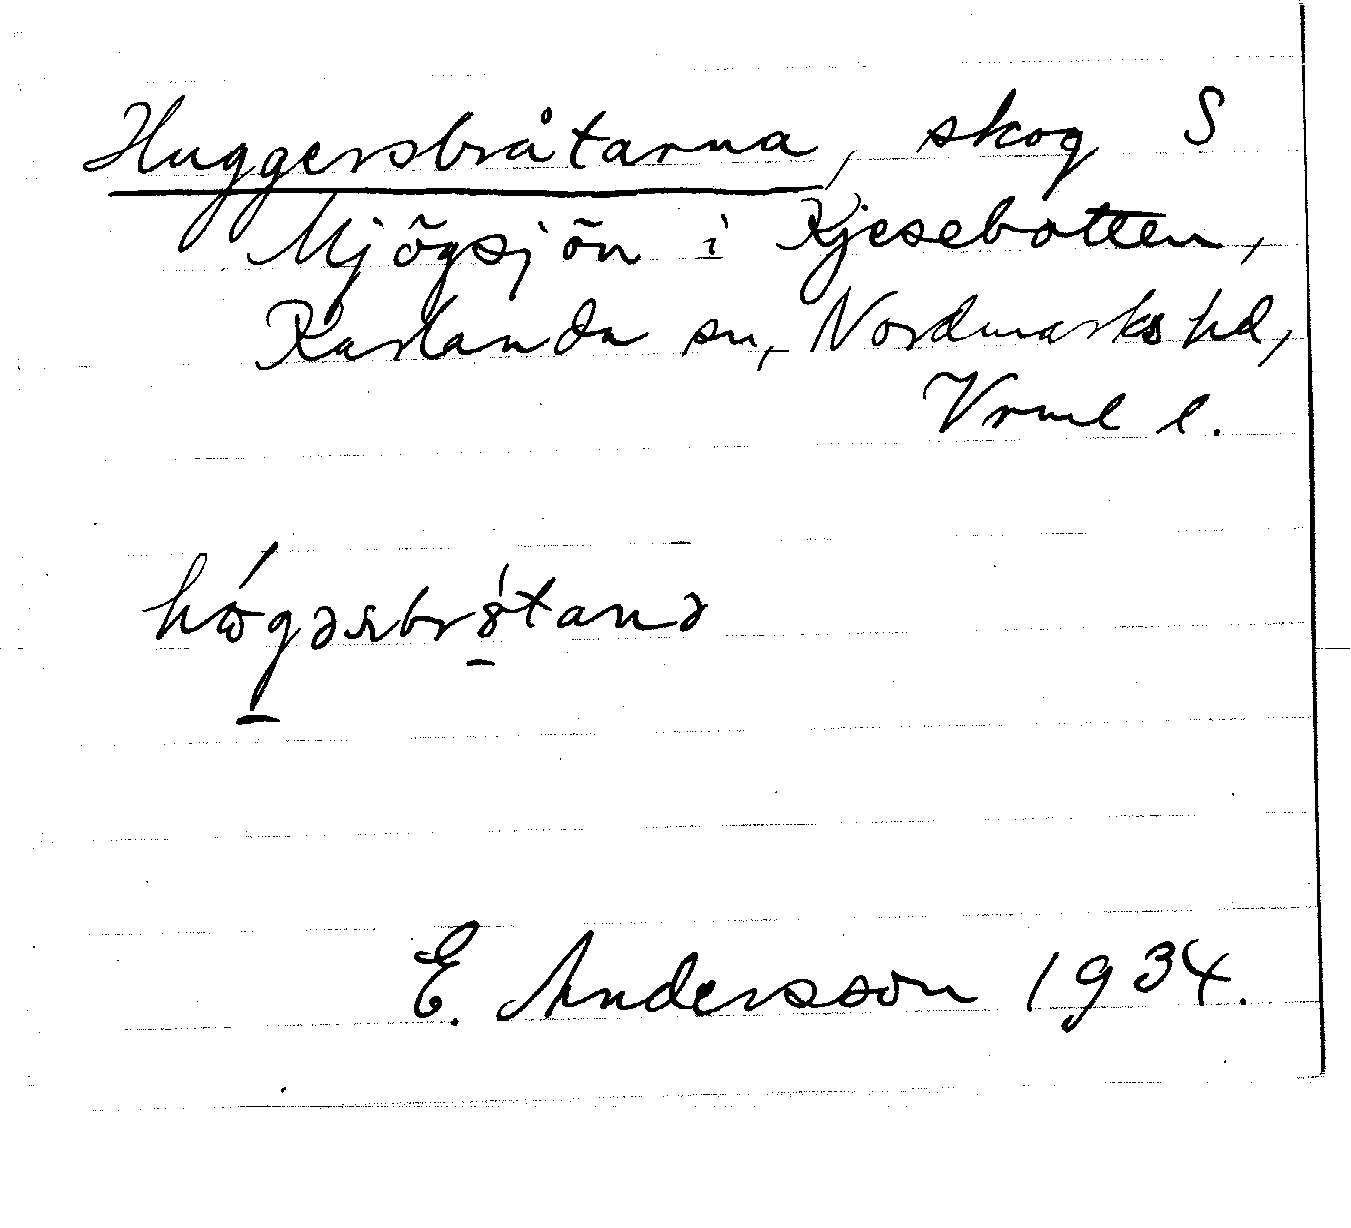 Huggersbråtarna, skog S
Mjögsjön i Kjesebotten,
Karlanda sn, Nordmarks hd,
Vrml l.
hógərsbrɔ́tanə
E. Andersson 1934.